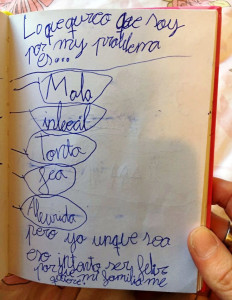 Lo que creo que soy
por my problema
es...
Mala
inbecil
Tonta
fea
Aburrida
pero yo unque sea
eso intento ser feliz
por que mi familia me